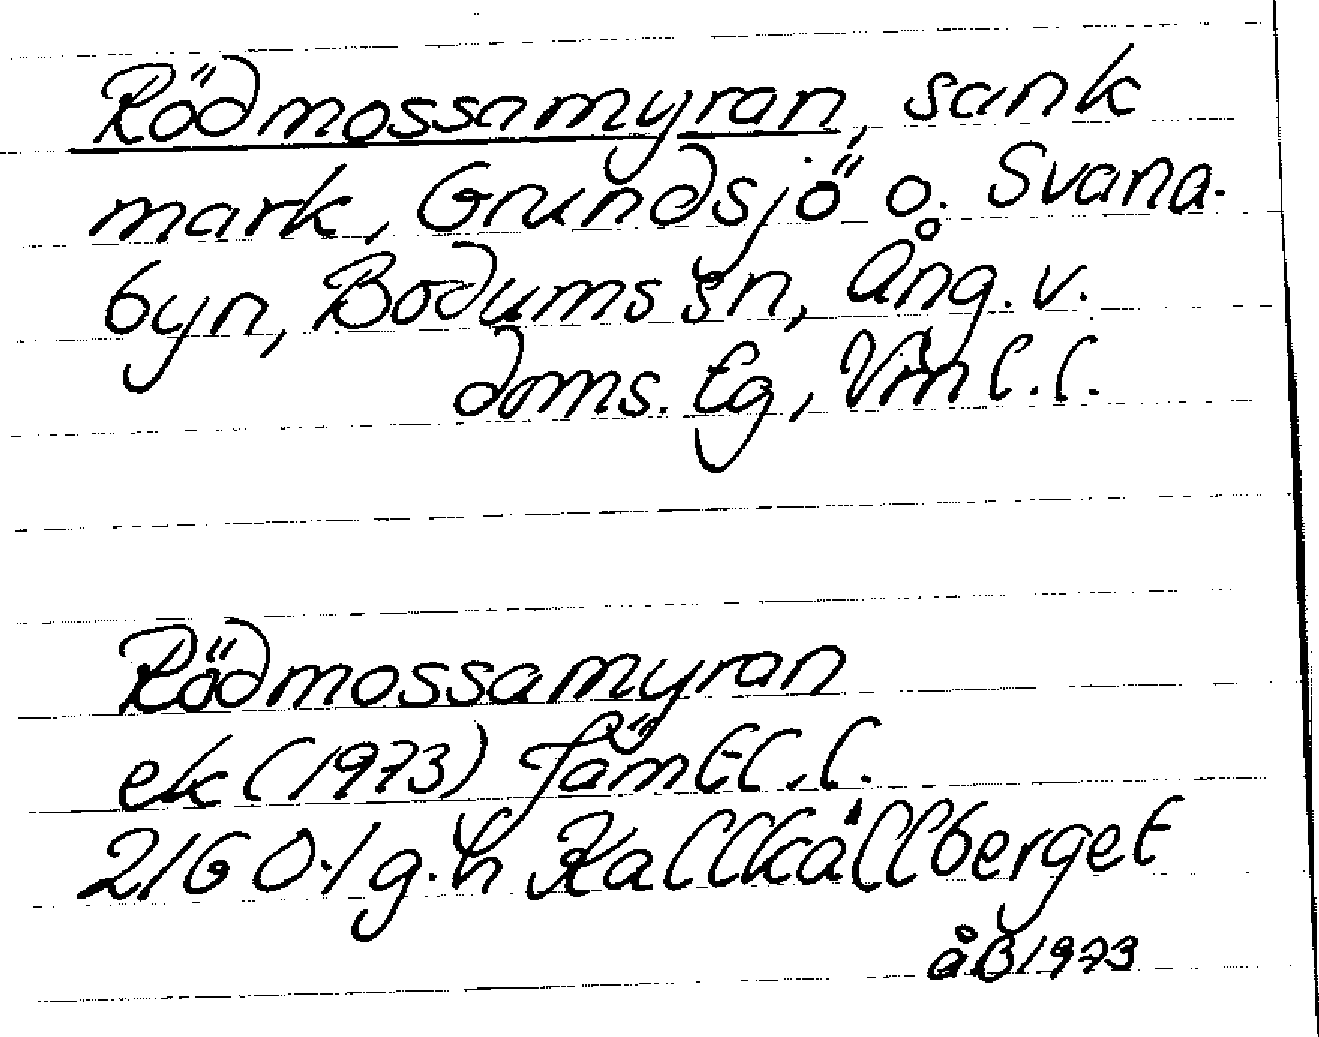 Rödmossamyran, sank
mark, Grundsjö o. Svana-
byn, Bodums sn, Ång. v.
doms. Eg, Vmll.
Rödmossamyran
ek (1973) Jämtl. l.
21G 0-1 g.h Kallkällberget
åB 1973